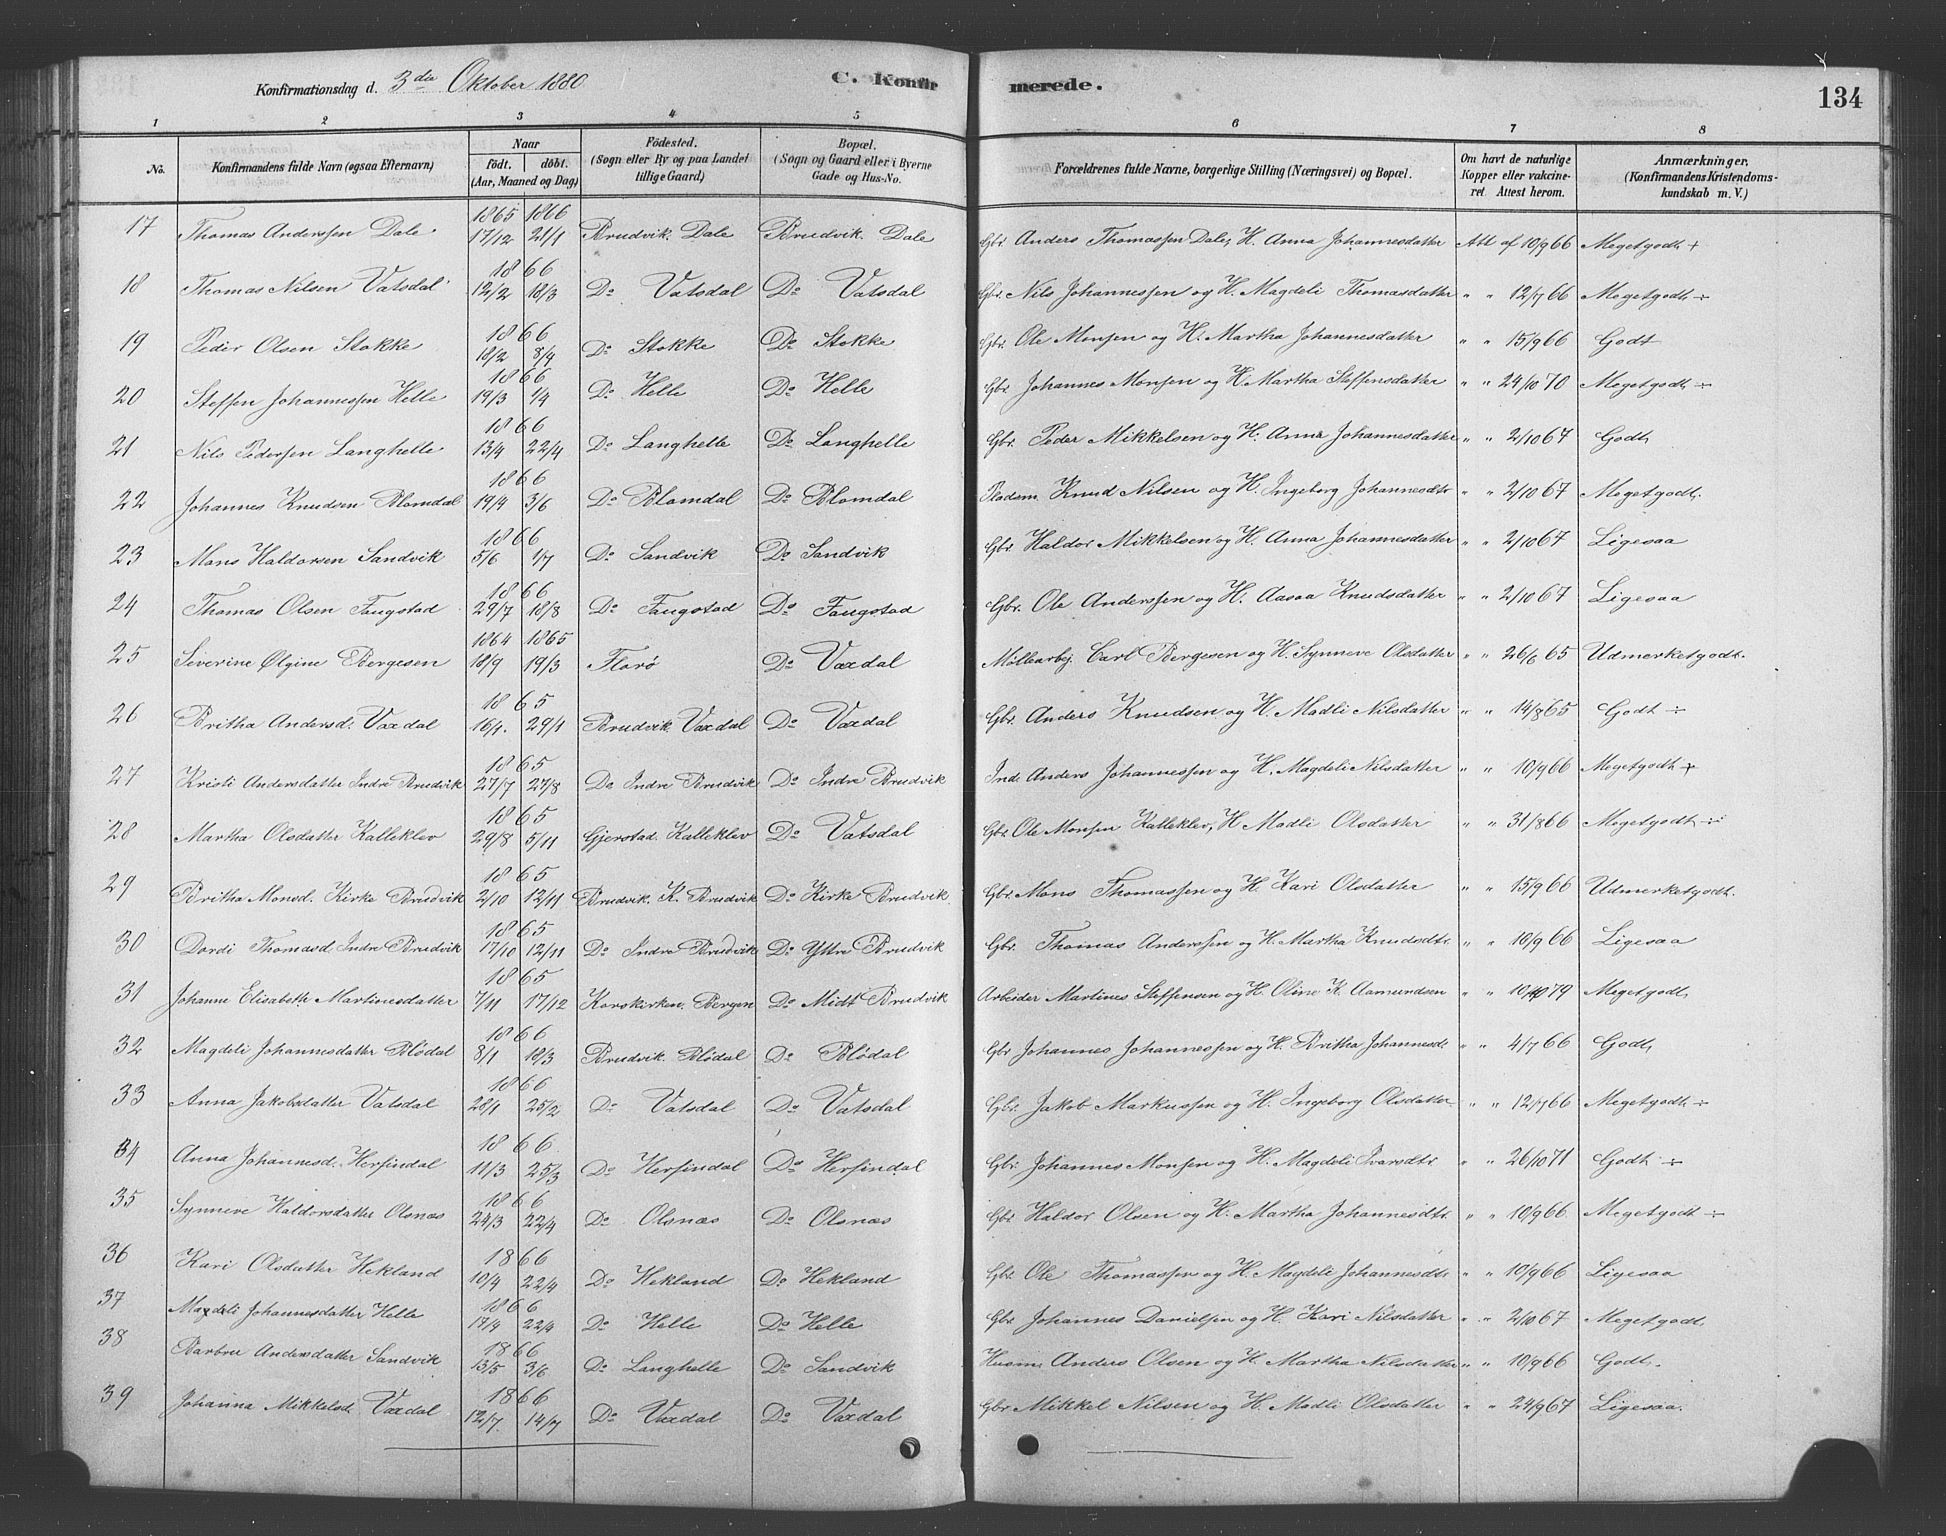 Konfirmationsdag d. 3die Oktober 1880 C. Konfirmerede. 134
1 2 3 4 5 6 7 8
No. Konfirmandens fulde Navn (ogsaa Efternavn) Naar født. døbt. (Aar, Maaned og Dag) Fødested. (Sogn eller By og paa Landet tillige Gaard) Bopæl. (Sogn og Gaard eller i Byerne Gade og Hus-No. Forældrenes fulde Navne, borgerlige Stilling (Næringsvei) og Bopæl. Om havt de naturlige Kopper eller vakcineret Attest herom. Anmærkninger, (Konfirmandens Kristendomskundskab m. V.)
17 Thomas Anderssen Dale 1865 17/12 1866 21/1 Brudvik. Dale Brudvik. Dale Gbr. Anders Thomassen Dale, H. Anna Johannesdatter Att af 10/9 66 Megetgodt +
18 Thomas Nilsen Vatsdal 1866 12/2 18/3 Do Vatsdal Do Vatsdal Gbr. Nils Johannessen og H. Magdeli Thomasdatter " " 12/7 66 Megetgodt ÷
19 Peder Olsen Stokke 1866 18/2 8/4 Do Stokke Do Stokke Gbr. Ole Monsen og H. Martha Johannesdatter " " 15/9 66 Godt
20 Steffen Johannessen Helle 1866 19/3 1/4 Do Helle Do Helle Gbr. Johannes Monsen og H. Martha Steffensdatter " " 24/10 70 Megetgodt ÷
21 Nils Pedersen Langhelle 1866 13/4 22/4 Do Langhelle Do Langhelle Gbr. Peder Mikkelsen og H. Anna Johannesdatter " " 2/10 67 Godt
22 Johannes Knudsen Blomdal 1866 19/4 3/6 Do Blomdal Do Blomdal Pladsm. Knud Nilsen og H. Ingeborg Johannesdtr " " 2/10 67 Megetgodt.
23 Mons Haldorsen Sandvik 1866 5/6 1/7 Do Sandvik Do Sandvik Gbr. Haldor Mikkelsen og H. Anna Johannesdatter " " 2/10 67 Ligesaa
24 Thomas Olsen Faugstad 1866 29/7 18/8 Do Faugstad Do Faugstad Gbr. Ole Anderssen og H. Aasaa Knudsdatter " " 2/10 67 Ligesaa
25 Severine Ølgine Bergesen 1864 18/9 1865 19/3 Florö Do Vaxdal Möllearbj. Carl Bergesen og H. Synneve Olsdatter " " 26/6 65 Udmerketgodt.
26 Britha Andersd. Vaxdal 1865 16/1. 29/1 Brudvik. Vaxdal Do Vaxdal Gbr. Anders Knudsen og H. Madli Nilsdatter " " 14/8 65 Godt ÷
27 Kristi Andersdatter Indre Brudvik 1865 27/7 27/8 Do Indre Brudvik Do Indre Brudvik Ind. Anders Johannessen og H. Magdeli Nilsdatter " " 10/9 66 Megetgodt +
28 Martha Olsdatter Kalleklev 1865 29/8 5/11 Gjerstad. Kalleklev Do Vatsdal Gbr. Ole Monsen Kalleklev, H. Madli Olsdatter " " 31/8 66 Megetgodt ÷
29 Britha Monsd. Kirke Brudvik 1865 2/10 12/11 Brudvik. K. Brudvik Do Kirke Brudvik. Gbr. Mons Thomassen og H. Kari Olsdatter " " 15/9 66 Udmerketgodt.
30 Dordi Thomasd. Indre Brudvik 1865 17/10 12/11 Do Indre Brudvik Do Yttre Brudvik Gbr. Thomas Anderssen og H. Martha Knudsdtr. " " 10/9 66 Ligesaa
31 Johanne Elisabeth Martinesdatter 1865 7/11 17/12 Korskirken. Bergen Do Midt Brudvik Arbeider Martines Steffensen og H. Oline K. Aamundsen " " 10/10 79 Megetgodt
32 Magdeli Johannesdatter Blödal 1866 8/1 18/3 Brudvik. Blödal Do Blödal Gbr Johannes Johannessen og H. Britha Johannesdt. " " 4/7 66 Godt
33 Anna Jakobsdatter Vatsdal 1866 28/1 25/2 Do Vatsdal Do Vatsdal Gbr. Jakob Markussen og H. Ingeborg Olsdatter. " " 12/7 66 Megetgodt ÷
34 Anna Johannesd. Herfindal 1866 11/3 25/3 Do Herfindal Do Herfindal Gbr. Johannes Monsen og H. Magdeli Ivarsdtr " " 26/10 71 Godt ÷
35 Synneve Haldorsdatter Olsnæs 1866 24/3 22/4 Do Olsnæs Do Olsnæs Gbr. Haldor Olsen og H. Martha Johannesdtr. " " 10/9 66. Megetgodt ÷
36 Kari Olsdatter Hekland 1866 10/4 22/4 Do Hekland Do Hekland Gbr. Ole Thomassen og H. Magdeli Johannesdtr. " " 10/9 66 Ligesaa
37 Magdeli Johannesdatter Helle 1866 17/4 22/4 Do Helle Do Helle Gbr. Johannes Danielsen og H. Kari Nilsdatter " " 2/10 67 Megetgodt,
38 Barbru Andersdatter Sandvik 1866 13/5 3/6 Do Langhelle Do Sandvik Husm. Anders Olsen og H. Martha Nilsdatter " " 10/9 66 Godt.
39 Johanna Mikkelsd. Vaxdal 1866 12/7. 14/7 Do Vaxdal Do Vaxdal Gbr Mikkel Nilsen og H. Madli Olsdatter " " 24/9 67 Ligesaa.